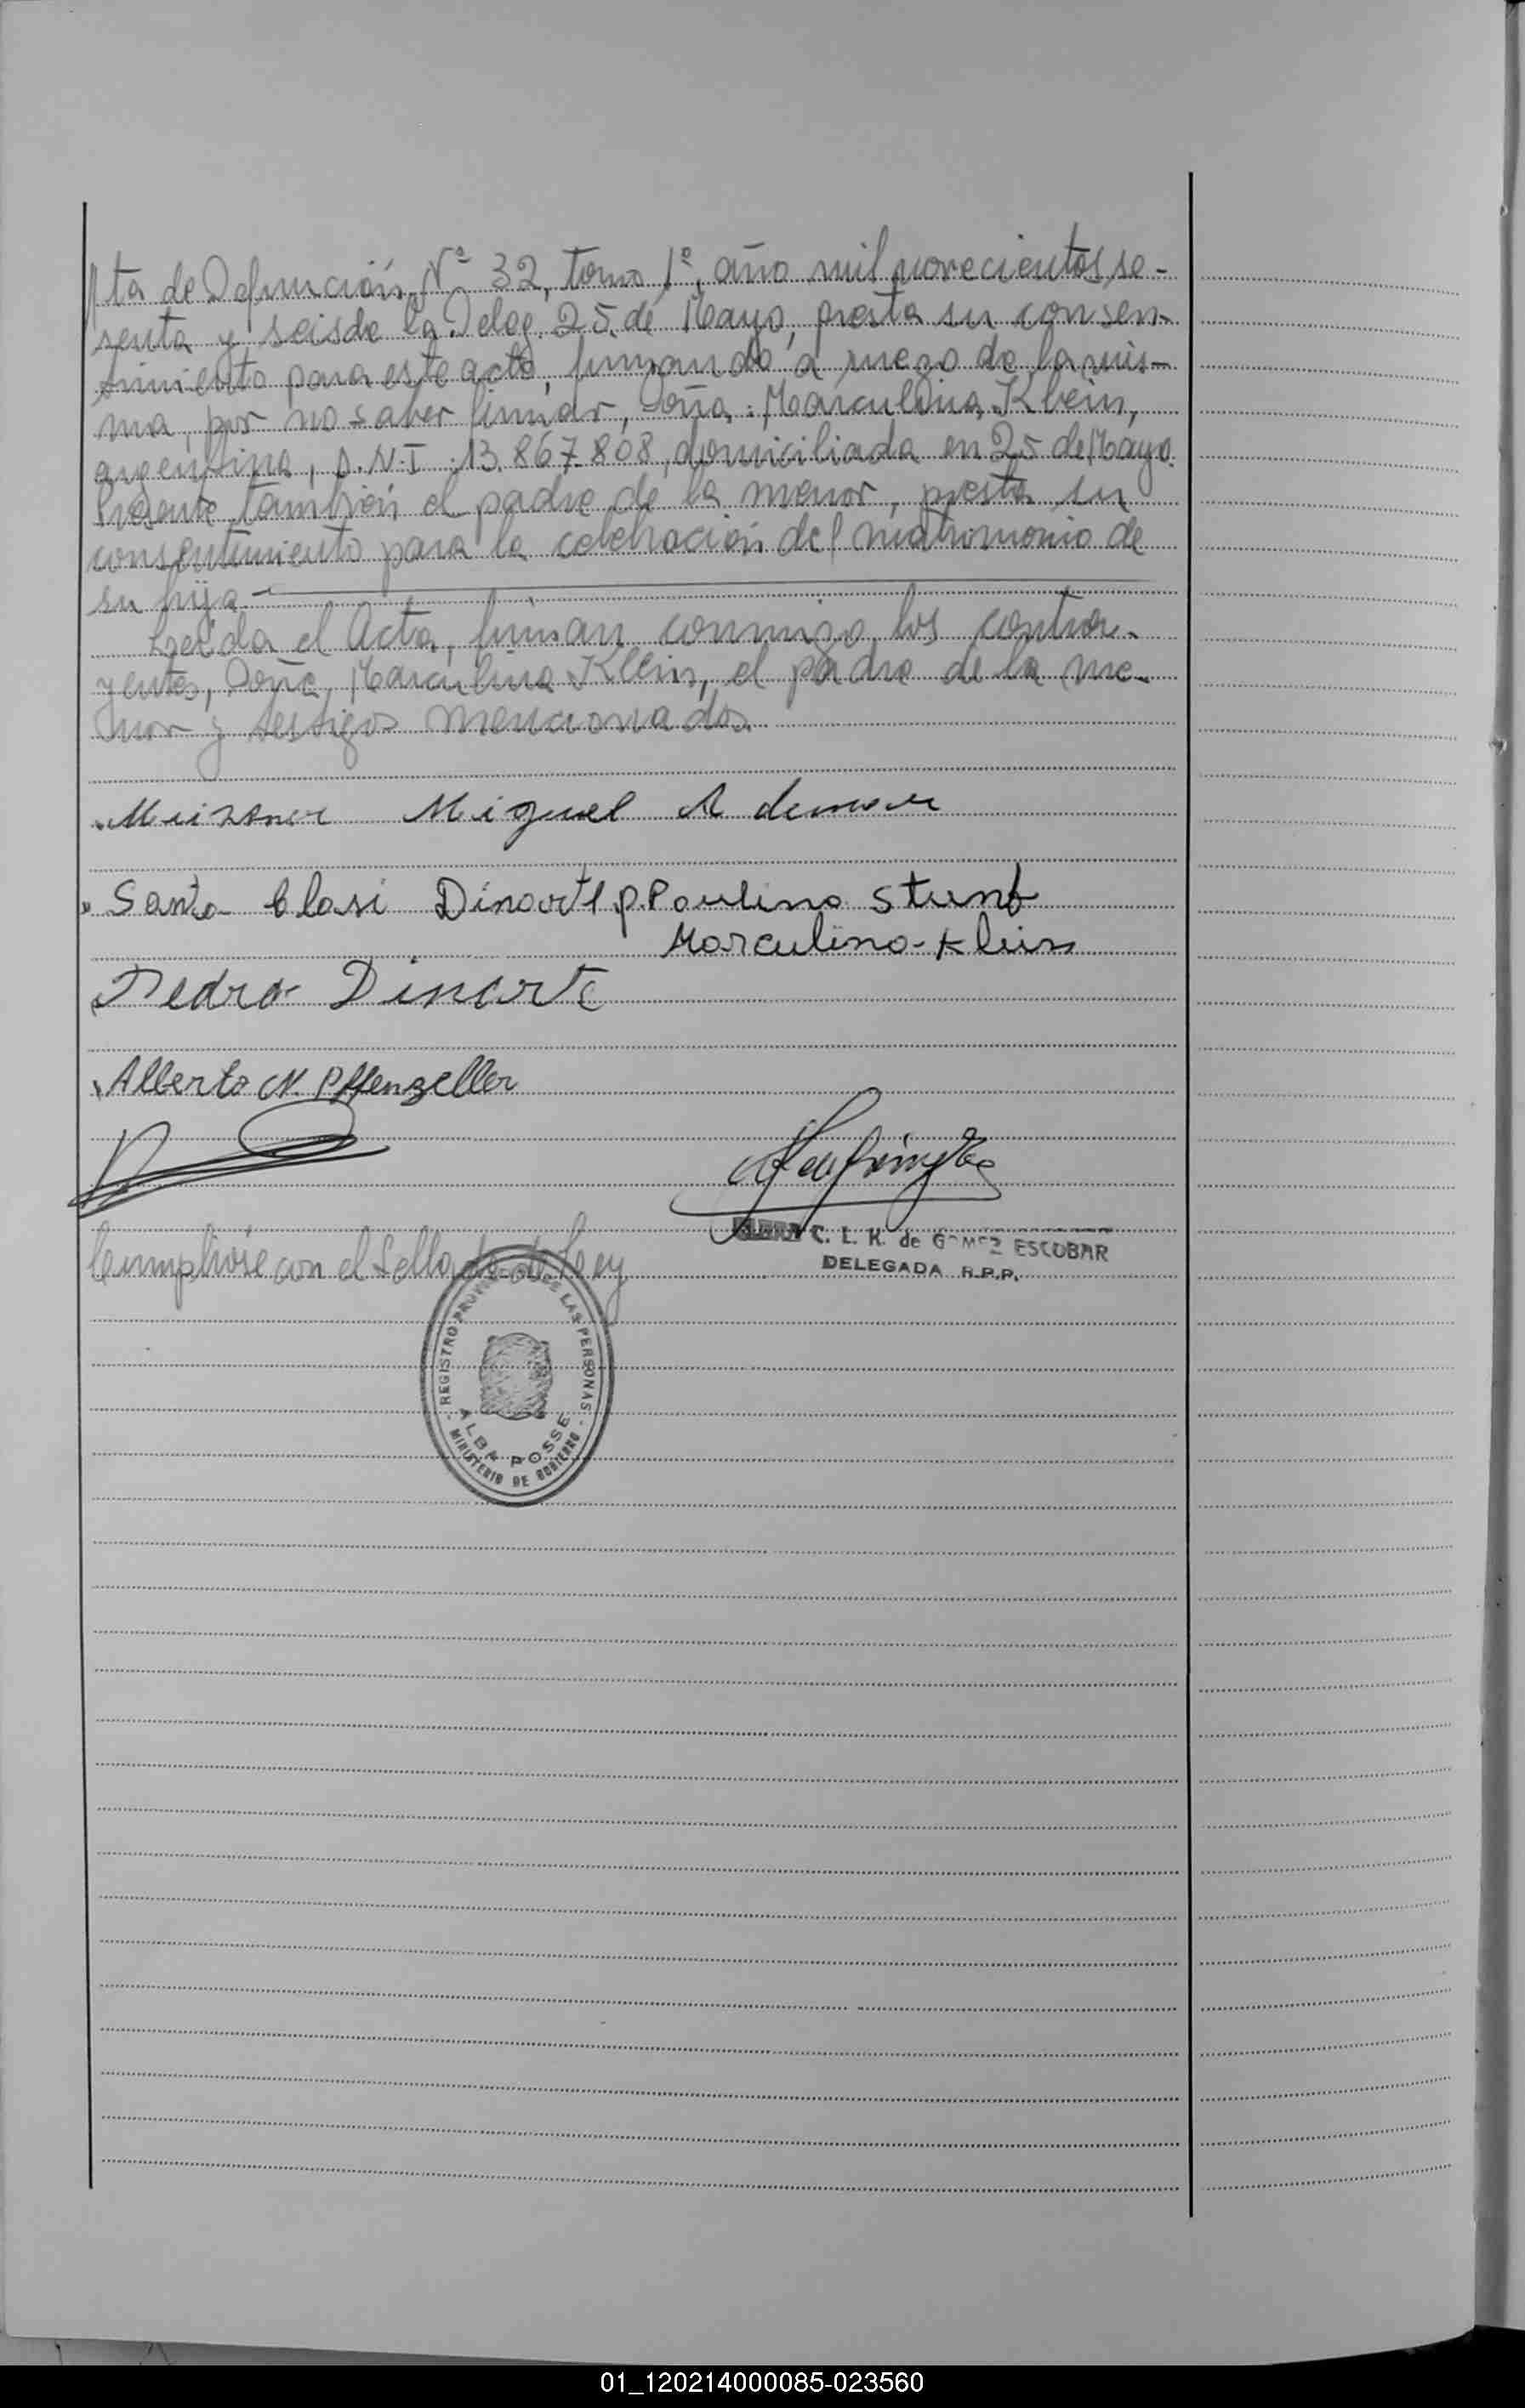 Ata de Defunción, Nº 32, tomo 1º, año mil novecientos se-
senta y seis de la Deleg. 25 de Mayo, presta su consen-
timiento para este acto, firmando a ruego de la mis-
ma, por no saber firmar, Doña: Marculina Klein,
argentina, D.N.I. 13.867.808, domiciliada en 25 de Mayo.
Presente también el padre de la menor, presta su
consentimiento para la celebración del matrimonio de
su hija.-
Leída el Acta, firman conmigo, los contra-
yentes, Doña, Marculina Klein, el padre de la me-
nor y testigos mencionados.
Miguel Ademar
Santa Clasi Dinarte p.Paulina Stumf
Marculina-Klein
Pedro Dinarte
Alberto N. Pffenzeller
C. L. K. de GOMEZ ESCOBAR
DELEGADA R.P.P.
Cumplióse con el Sellado de Ley
REGISTRO PROVINCIAL DE LAS PERSONAS
ALBA POSSE
MINISTERIO DE GOBIERNO
01_120214000085-023560